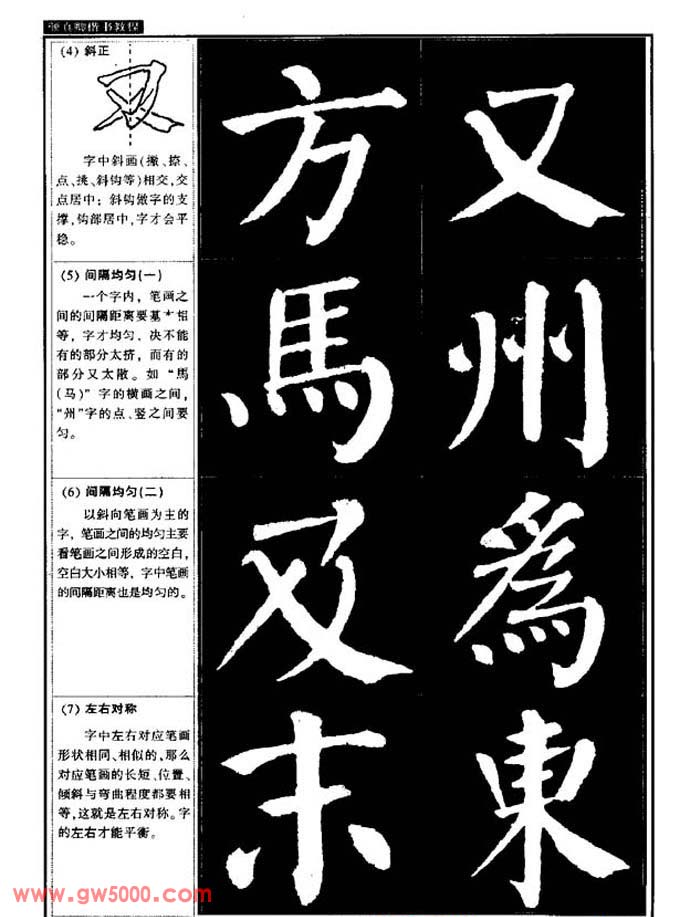 颜真卿楷书教程
(4) 斜正
字中斜画(撇、捺、
点、挑、斜钩等)相交,交
点居中; 斜钩做字的支
撑,钩部居中,字才会平
稳。
方 又
(5) 间隔均匀(一)
一个字内, 笔画之
间的间隔距离要基本相
等, 字才均匀, 决不能
有的部分太挤, 而有的
部分又太散。如“馬
(马)”字的横画之间,
“州”字的点、竖之间要
匀。
馬 州
(6) 间隔均匀(二)
以斜向笔画为主的
字, 笔画之间的均匀主要
看笔画之间形成的空白,
空白大小相等, 字中笔画
的间隔距离也是均匀的。
及 爲
(7) 左右对称
字中左右对应笔画
形状相同、相似的,那么
对应笔画的长短、位置、
倾斜与弯曲程度都要相
等,这就是左右对称。字
的左右才能平衡。
末 東
www.gw5000.com